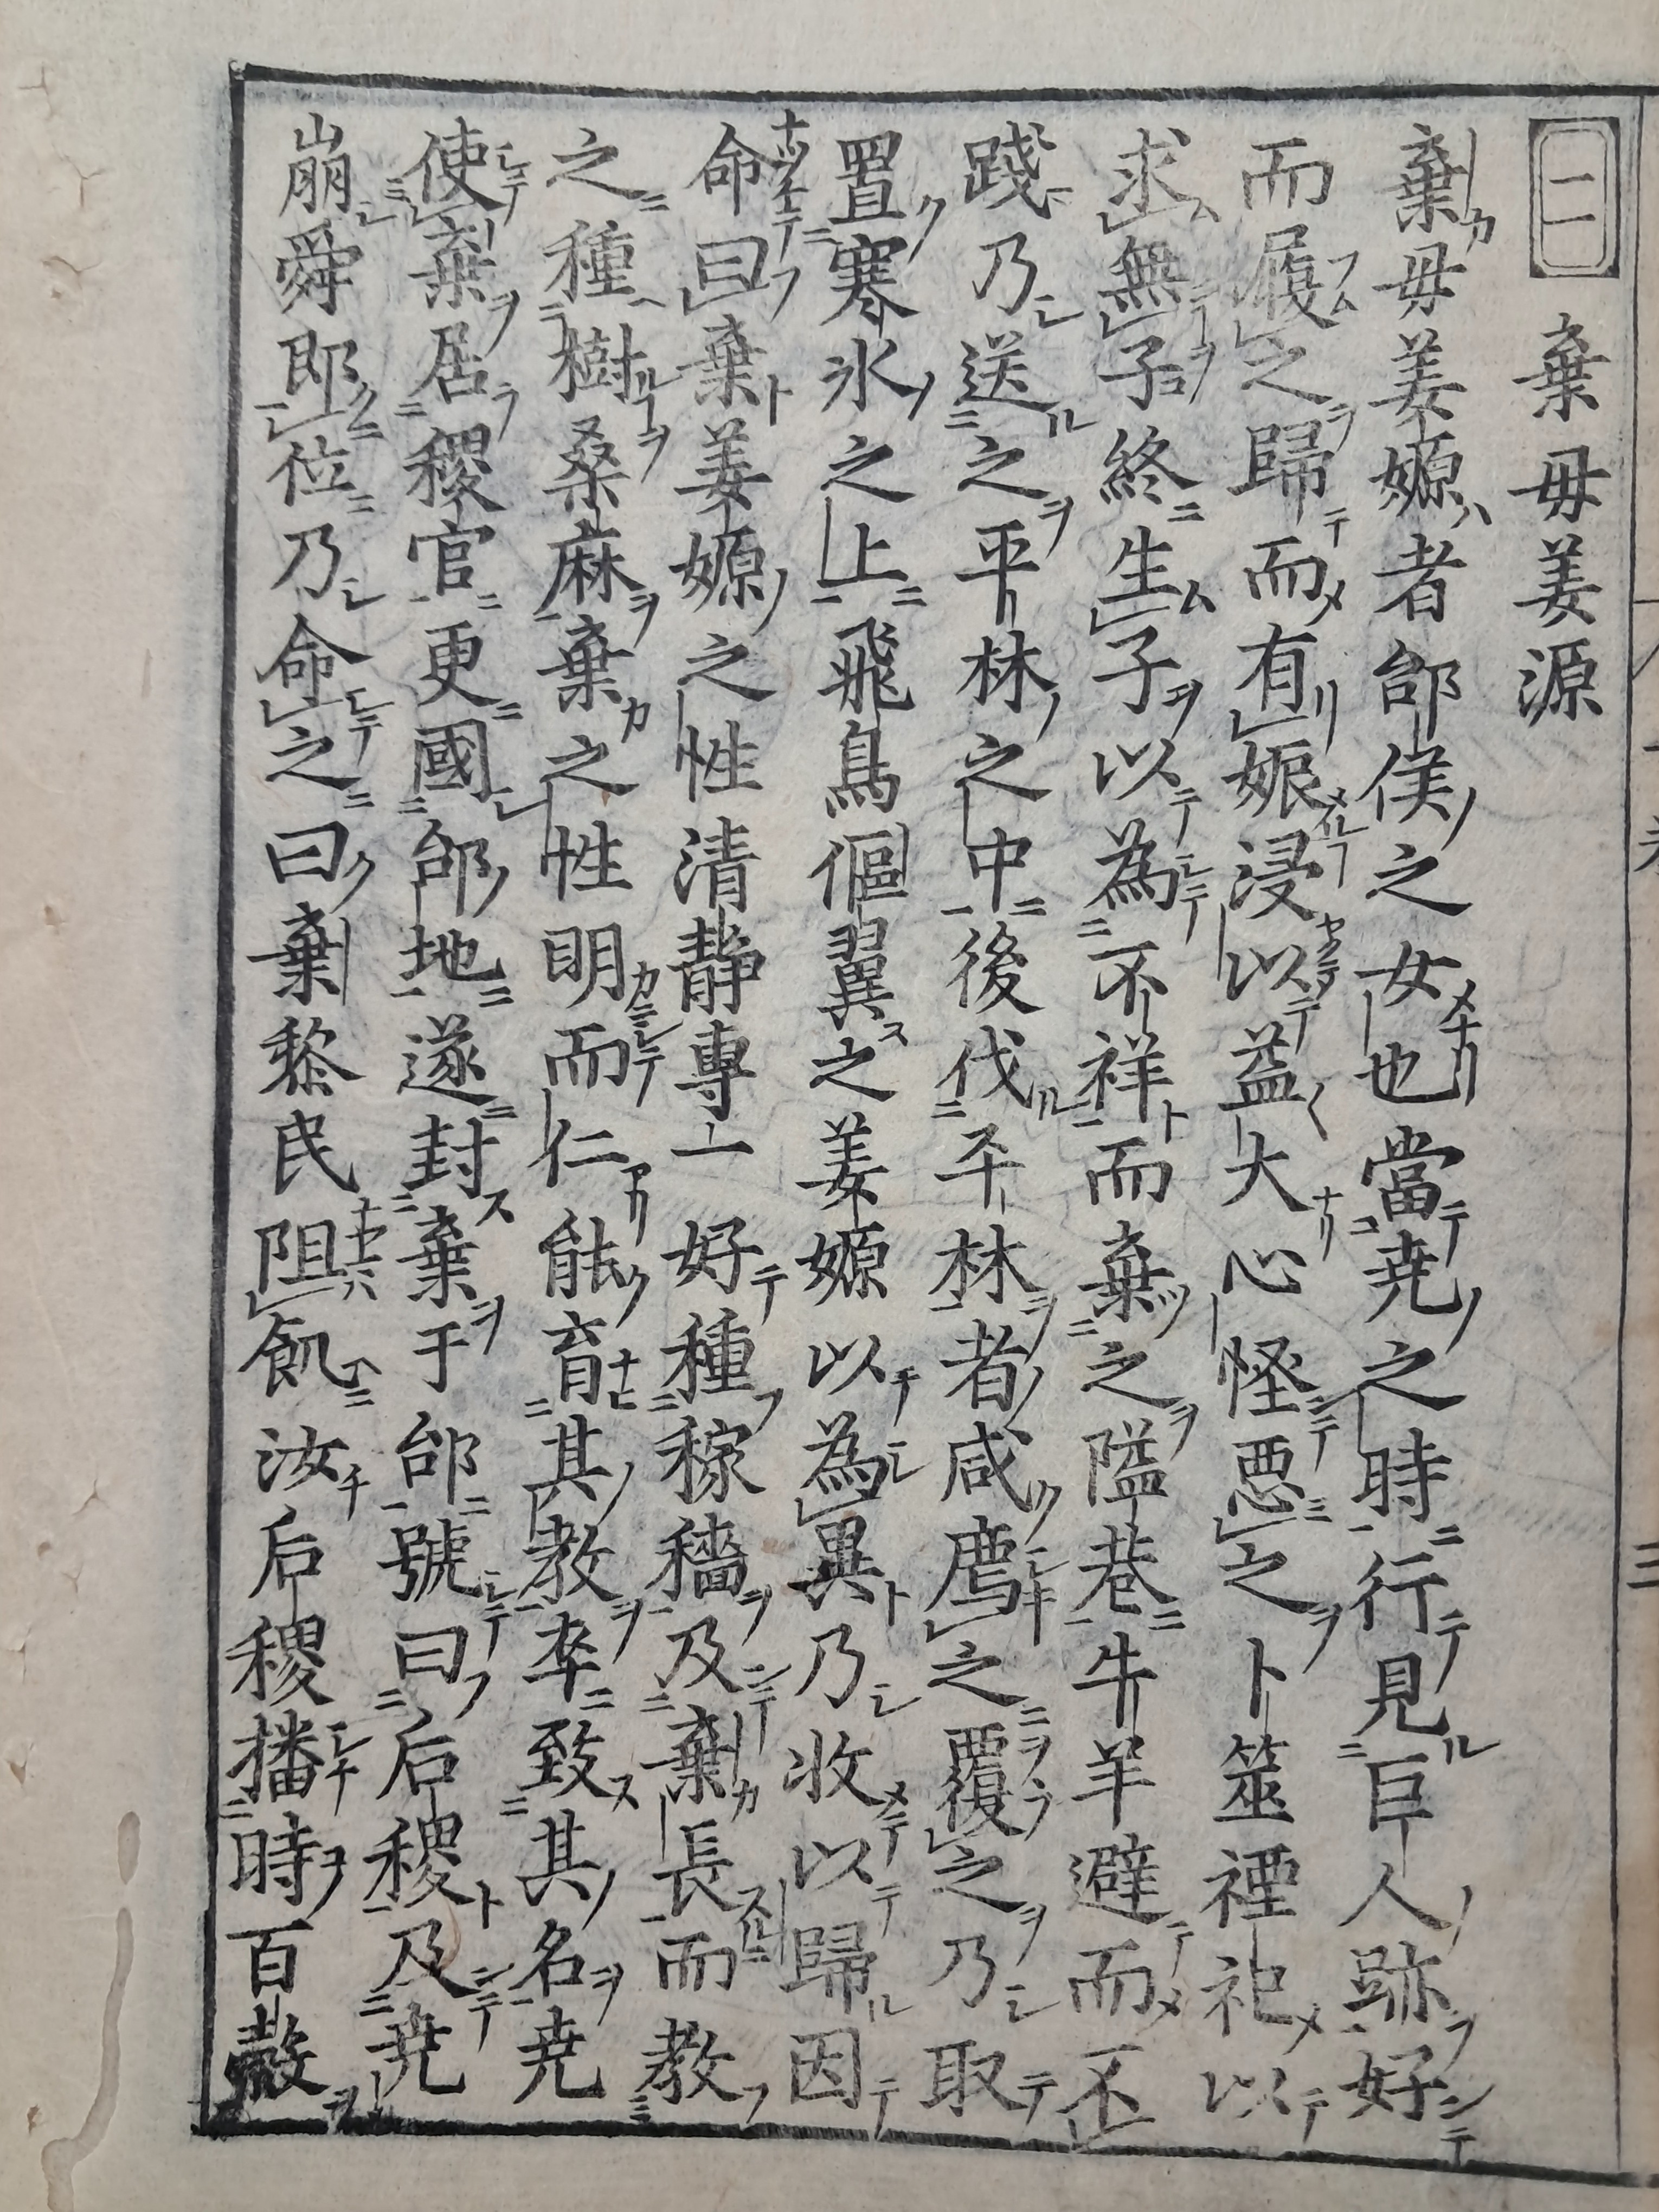 二 棄母姜源
棄母姜嫄者邰侯之女也當尭之時行見巨人跡好
而履之歸而有娠浸以益大心怪悪之卜筮禋祀以
求無子終生子以為不祥而棄之隘巷牛羊避而不
踐乃送之平林之中後伐平林者咸薦之覆之乃取
置寒氷之上飛鳥傴翼之姜嫄以為異乃收以歸因
命曰棄姜嫄之性清靜專一好種稼穡及棄長而教
之種樹桑麻棄之性明而仁能育其教卒致其名尭
使棄居稷官更國邰地遂封棄于邰號曰后稷及尭
崩舜即位乃命之曰棄黎民阻飢汝后稷播時百穀